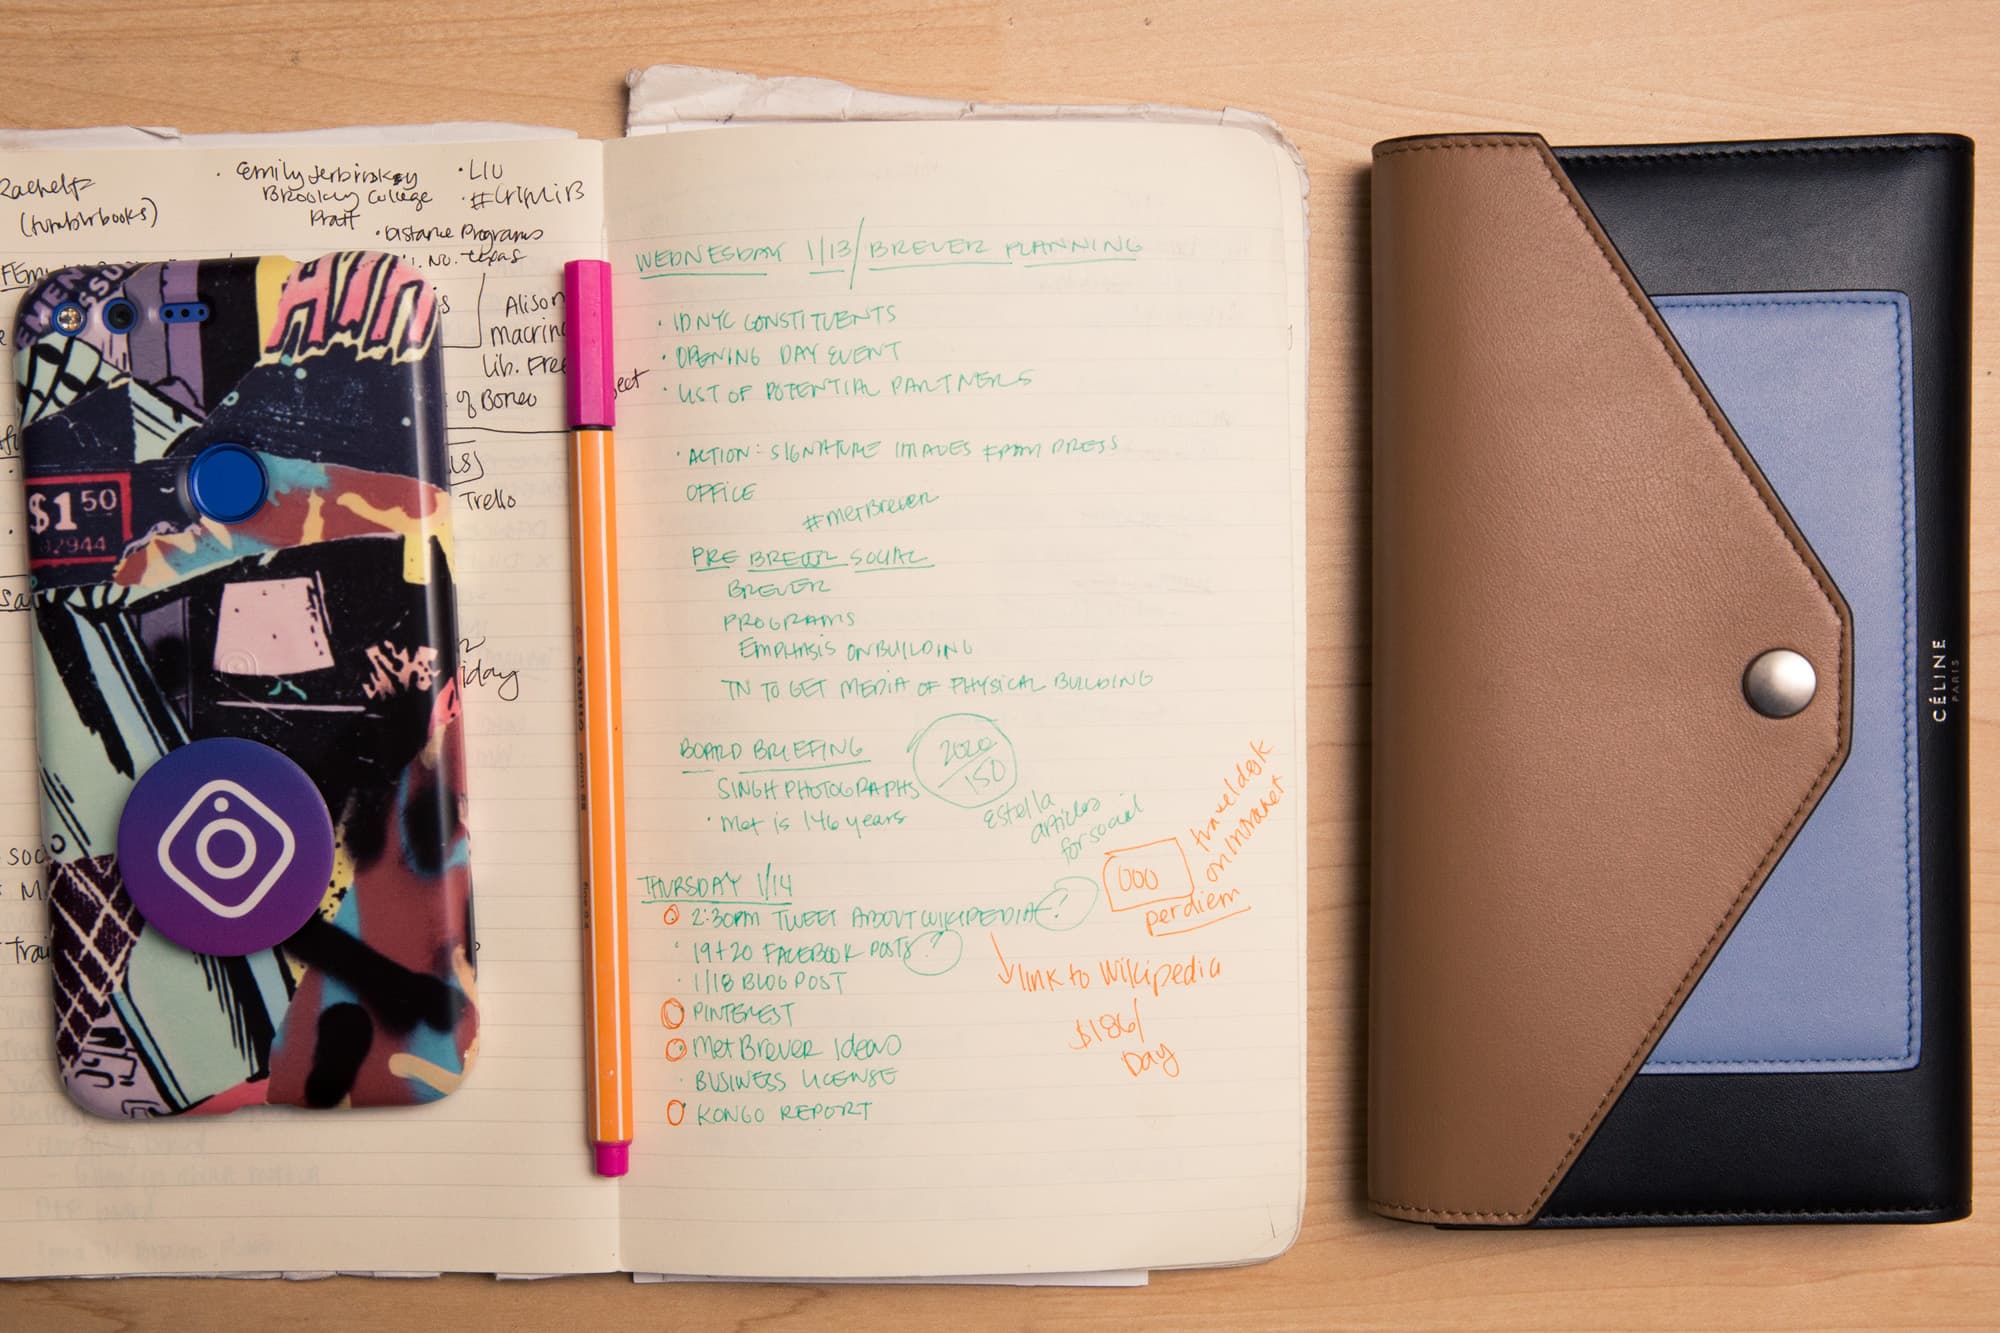 (tumblrbooks)
Brooklyn College
Pratt
• LIU
• #critlib
• Distance Programs
Alison
macrina
lib. Free
of Borneo
Trello
iday
$1 50
92944
WEDNESDAY 1/13/BREUER PLANNING
• IDNYC CONSTITUENTS
• OPENING DAY EVENT
• LIST OF POTENTIAL PARTNERS
• ACTION: SIGNATURE IMAGES FROM PRESS
OFFICE
#metBreuer
PRE BREUER SOCIAL
BREUER
PROGRAMS
EMPHASIS ON BUILDING
TN TO GET MEDIA OF PHYSICAL BUILDING
BOARD BRIEFING
2020/150
SINGH PHOTOGRAPHS
• Met is 146 years
Estella
articles
for social
THURSDAY 1/14
2:30PM TWEET ABOUT WIKIPEDIA?
• 19+20 FACEBOOK POSTS?
• 1/18 BLOG POST
PINTEREST
Met Breuer Ideas
• BUSINESS LICENSE
KONGO REPORT
travel desk
on intranet
000
per diem
link to Wikipedia
$186/
Day
CÉLINE
PARIS